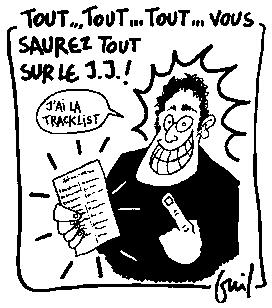 TOUT... TOUT... TOUT... VOUS
SAUREZ TOUT
SUR LE J.J.!
J'AI LA
TRACKLIST